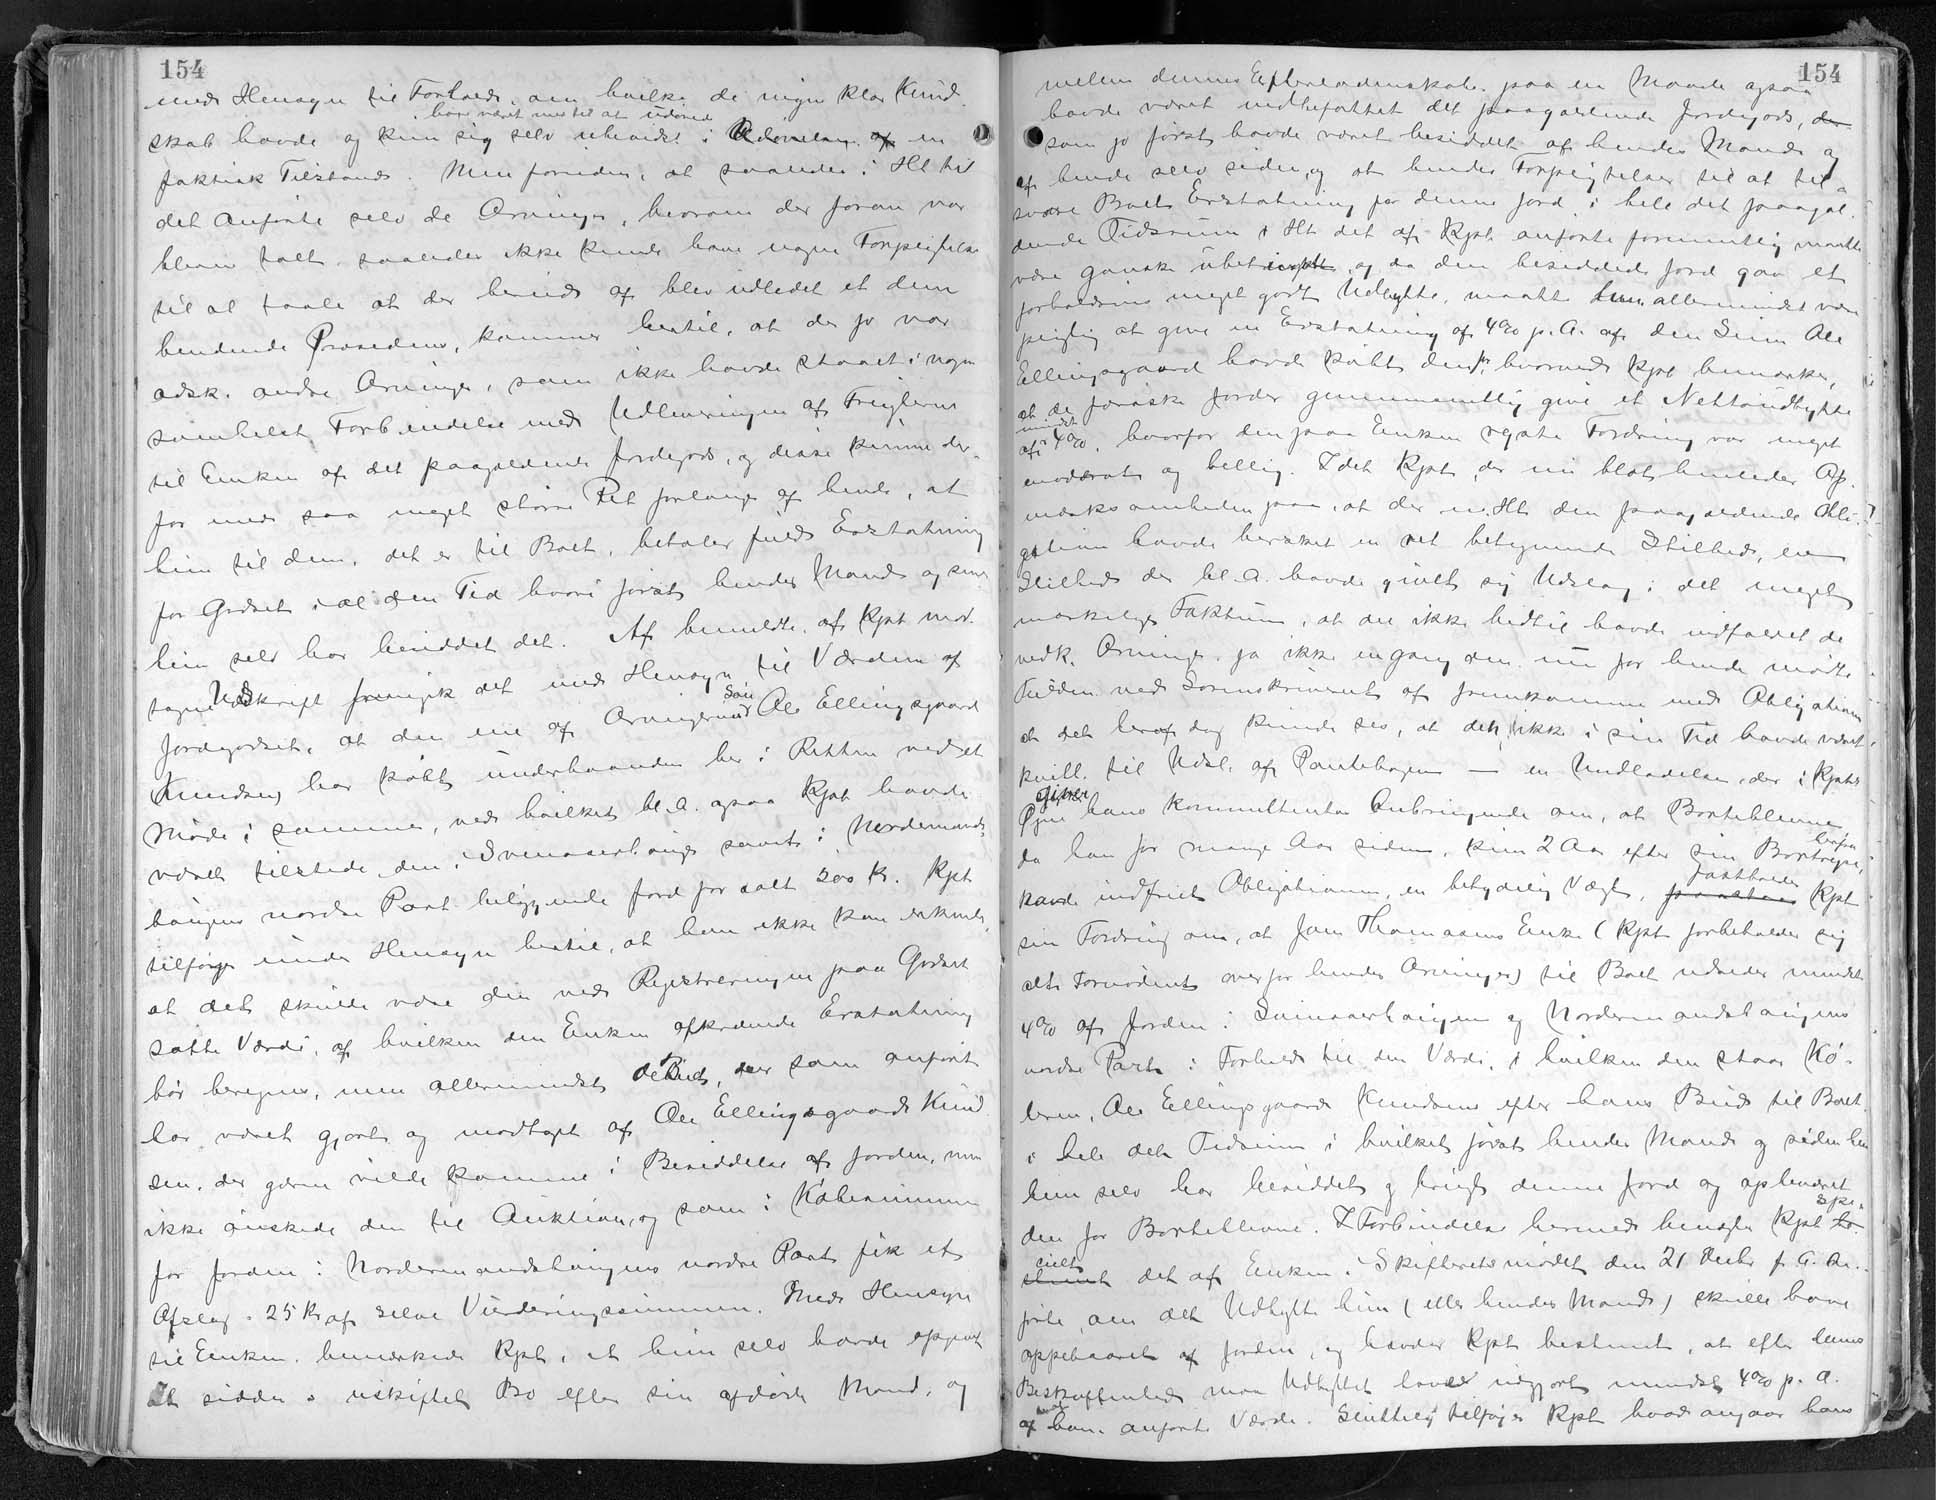 154
med Hensyn til Forhold, om hvilke de ingen klar Kund-
har været med til at udøve
skab havde og kun sig selv uhindret i Udøvelsen af en
faktisk Tilstand. Men foruden, at saaledes i Hht til
det anførte selv de Arvinger, hvorom der foran var
bleven talt saaledes ikke kunde have nogen Forpligtelse
til at taale at der herved af blev udledet et dem
bindende Præsedens, kommer hertil, at der jo var
adsk. andre Arvinger, som ikke havde staaet i nogen
somhelst Forbindelse med Udleveringen af
til Enken af det paagældende Jordegods, og disse kunne der-
for med saa meget større Ret forlange af hende, at
hun til dem, det er til Boet, betaler fuld Erstatning
for Godset i al den Tid hvori først hendes Mand og senere
hun selv har besiddet det. Af bemeldte, af Kpt mod-
tagne Udskrift fremgik det med Hensyn til Værdien af
Jordegodset, at den ene af Arvingernes Søn Ole Ellingsgaard
Knudsen har købt underhaanden her i Retten ved et
Møde i samme, ved hvilket bl.a. ogsaa Kpt havde
været tilstede, den i Svinaaerhaugen samt i Nordemands-
haugens nordre Part beliggende Jord for ialt 500 Kr. Kpt
tilføjer under Hensyn hertil, at han ikke kan erkende,
at det skulde være den ved Registreringen paa Godset
satte Værdi, af hvilken den Enken afkrævede Erstatning
bør beregnes, men allermindst det Bud, der som anført
har været gjort og modtaget af Ole Ellingsgaard Knud-
sen, der gerne vilde komme i Besiddelse af Jorden, men
ikke ønskede den til Auktion, og som i Købesummen
for Jorden i Nordemandshaugens nordre Part fik et
Afslag = 25 Kr af selve Vurderingssummen. Med Hensyn
til Enken bemærkede Kpt, at hun selv havde opgivet
at sidde i uskiftet Bo efter sin afdøde Mand, og
154
mellem dennes Efterladenskaber paa en Maade ogsaa
havde været indbefattet det paagældende Jordegods, der
som jo først havde været besiddet af hendes Mand og
af hende selv siden, og at hendes Forpligtelse til at til-
svare Boet Erstatning for denne Jord i hele det paagæl-
dende Tidsrum i Hht det af Kpt anførte formentlig maatte
være ganske ubetinget, og da den besiddede Jord gav et
forholdsvis meget godt Udbytte, maatte hun allermindst være
pligtig at give en Erstatning af 4% p.A. af den Sum Ole
Ellingsgaard havde købt den for, hvorved Kpt bemærker,
at de færøske Jorder gennemsnitlig give et Nettoudbytte
mindst
af 4%, hvorfor den paa Enken rejste Fordring var meget
moderat og billig. Idet Kpt, der nu blot henleder Op-
mærksomheden paa, at der m. Ht. den paagældende Obli-
gation havde hersket en ret betegnende Stilhed, en
Stilhed der bl.a. havde givet sig Udslag i det meget
mærkelige Faktum, at det ikke hidtil havde indfaldet de
vedk. Arvinger, ja ikke engang den nu for hende mødte
Fuldm. ved Sorenskriveriet at fremkomme med Obligationen
at det heraf dog kunde ses, at den ikke i sin Tid havde været
kvitt. til Udsl. af Pantebogen — en Undladelse, der i Kpts
giver
Øjne hans Kommittenters Anbringende om, at Bortblevne,
da han for mange Aar siden, kun 2 Aar efter sin Bortrejse herfra,
havde indfriet Obligationen, en betydelig Vægt, fastholder Kpt
sin Fordring om, at Joen Thomasens Enke (Kpt forbeholder sig
alt Fornødent overfor hendes Arvinger) til Boet udreder mindst
4% af Jorden i Svinaaerhaugen og Nordemandshaugens
nordre Part i Forhold til den Værdi, i hvilken den staar Kø-
beren, Ole Ellingsgaard Knudsen efter hans Bud til Boet
i hele det Tidsrum i hvilket først hendes Mand og siden hen
hun selv har besiddet og brugt denne Jord og oppebaaret
den for Bortblevne. I Forbindelse hermed benægter Kpt spe-
cielt det af Enken i Skifteretsmødet den 21 Decbr f. A. an-
førte, om det Udbytte hun (eller hendes Mand) skulle have
oppebaaret af Jorden, og hævder Kpt bestemt, at efter dennes
Beskaffenhed maa Udbyttet have udgjort mindst 4% p.a.
af den anførte Værdi. Sluttelig tilføjer Kpt hvad angaar hans